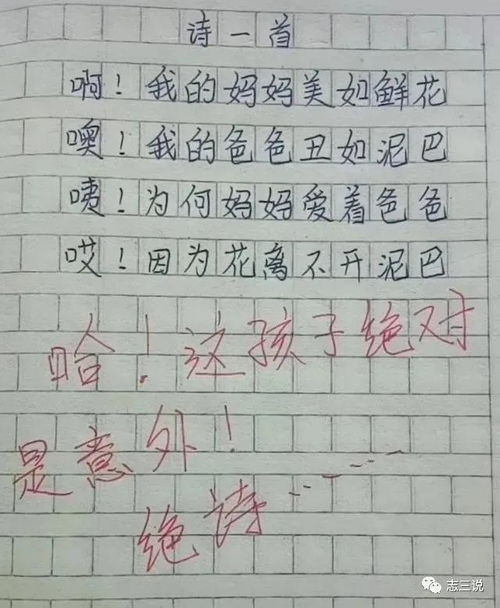 诗一首
啊！我的妈妈美如鲜花
噢！我的色色丑如泥巴
咦！为何妈妈爱着色色
哎！因为花离不开泥巴
哈！这孩子绝对
是意外！
绝诗……
志三说